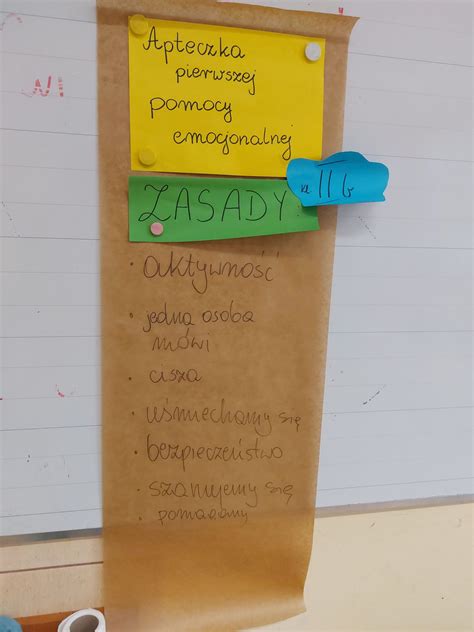 Apteczka
pierwszej
pomocy
emocjonalnej
kl II b
ZASADY:
• aktywność
• jedną osoba
mówi
• cisza
• uśmiechamy się
• bezpieczeństwo
• szanujemy się
• pomagamy